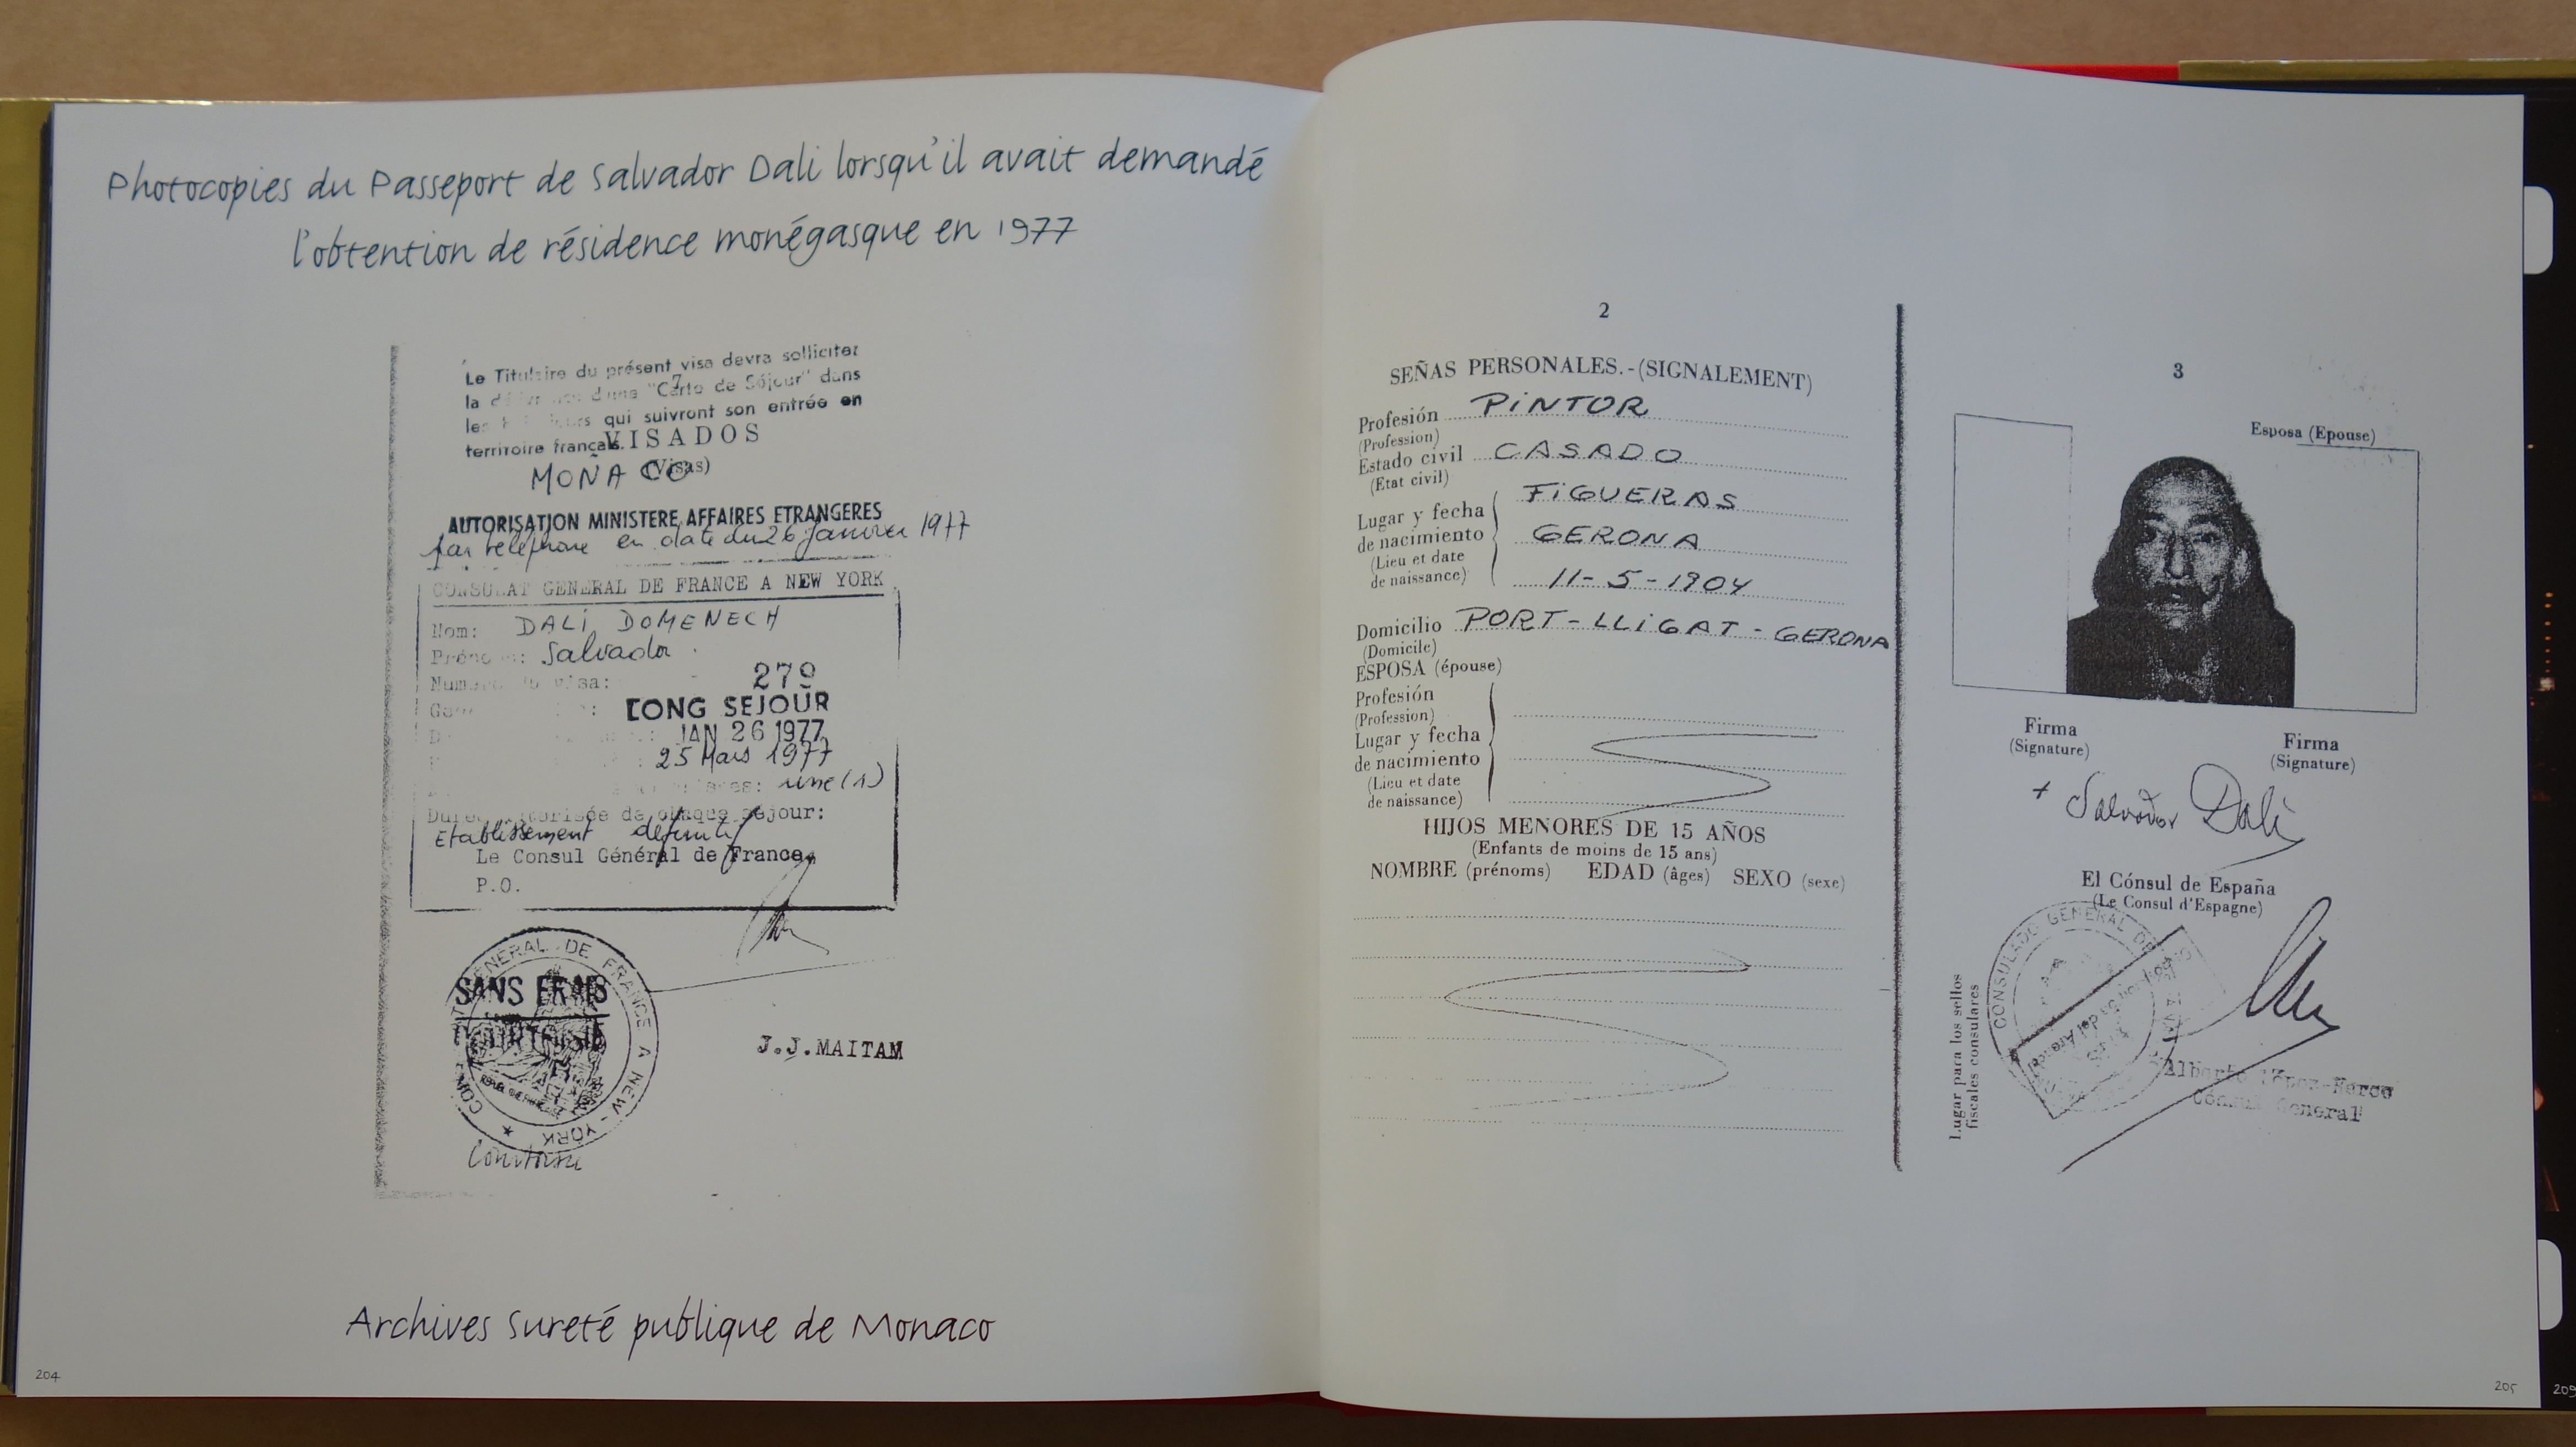 Photocopies du Passeport de Salvador Dali lorsqu'il avait demandé
l'obtention de résidence monégasque en 1977
Le Titulaire du présent visa devra solliciter
la d'une "Carte de Séjour" dans
les jours qui suivront son entrée en
territoire français.
7
VISADOS
(Visas)
MOÑACO
AUTORISATION MINISTERE AFFAIRES ETRANGERES
par téléphone en date du 26 janvier 1977
CONSULAT GENERAL DE FRANCE A NEW YORK
Nom: DALI DOMENECH
Prénom: Salvador
visa: 279
LONG SEJOUR
JAN 26 1977
25 Mars 1977
une (1)
Durée autorisée de chaque séjour:
Etablissement définitif
Le Consul Général de France,
P.O.
GENERAL DE FRANCE A NEW-YORK
SANS FRAIS
COURTOISIE
Courtoisie
J.J.MAITAM
Archives sureté publique de Monaco
204
2
SEÑAS PERSONALES.-(SIGNALEMENT)
Profesión PiNTOR
(Profession)
Estado civil CASADO
(Etat civil)
Lugar y fecha FiGUERAS
de nacimiento GERONA
(Lieu et date
de naissance) 11-5-1904
Domicilio PORT-LLiGAT-GERONA
(Domicile)
ESPOSA (épouse)
Profesión
(Profession)
Lugar y fecha
de nacimiento
(Lieu et date
de naissance)
HIJOS MENORES DE 15 AÑOS
(Enfants de moins de 15 ans)
NOMBRE (prénoms) EDAD (âges) SEXO (sexe)
3
Esposa (Epouse)
Firma
(Signature)
Firma
(Signature)
+ Salvador Dali
El Cónsul de España
(Le Consul d'Espagne)
CONSULADO GENERAL DE
Lugar para los sellos
fiscales consulares
Alberto López-Herce
Cónsul General
205
209